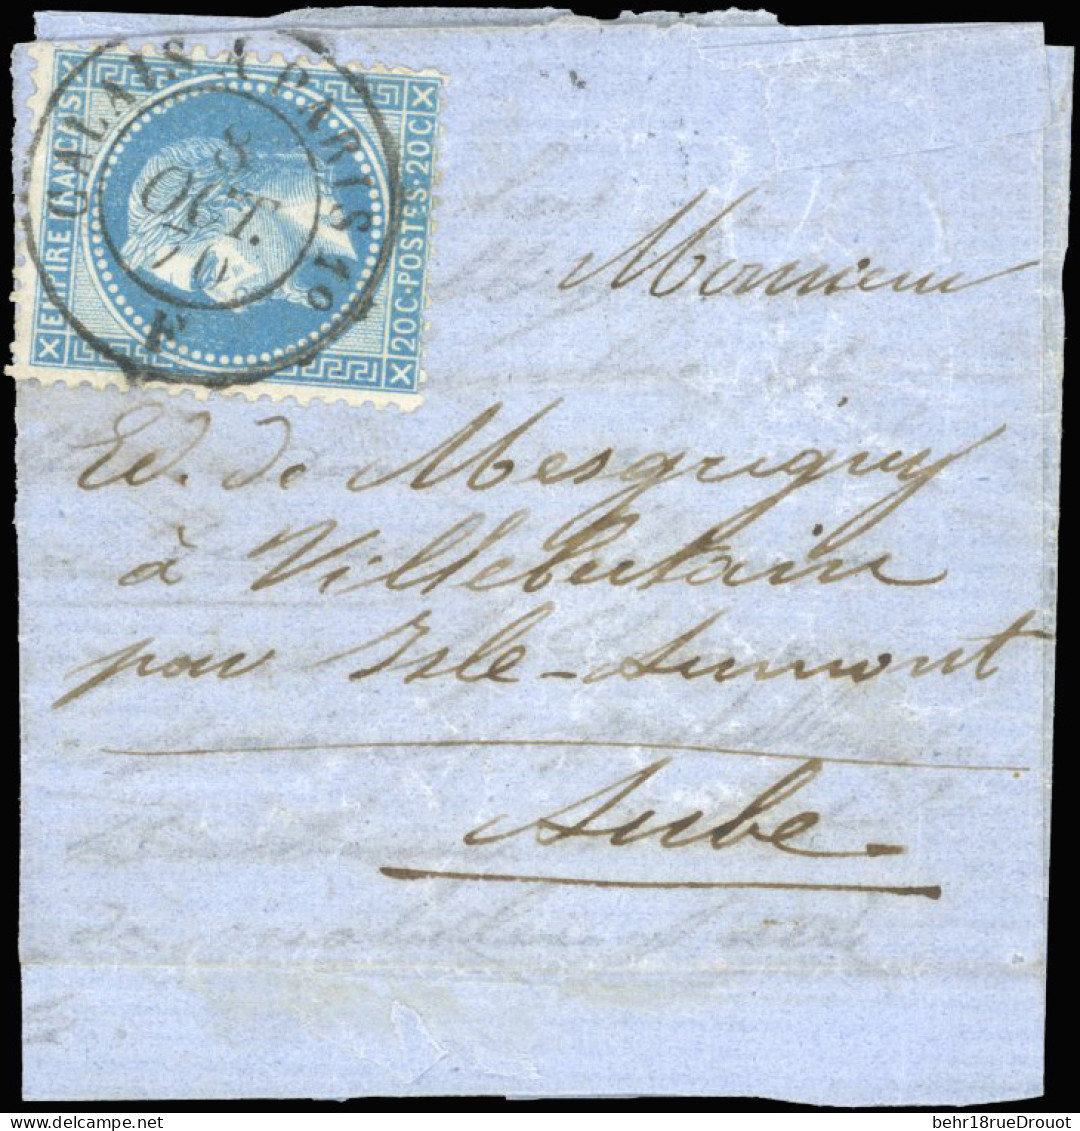 EMPIRE FRANÇAIS
20 C · POSTES · 20 C
CALAIS A PARIS 1o
8
OCT.
70
F
Monsieur
Ed. de Mesgrigny
à Villebertain
par Isle-Aumont
Aube.
behr18rueDrouot